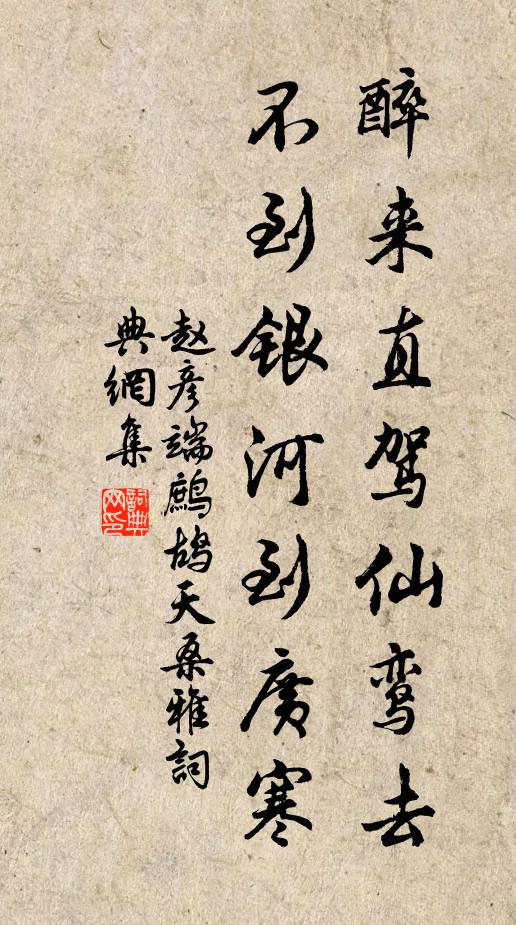 醉来直驾仙鸾去
不到银河到廣寒
赵彦端鹧鸪天桑雅詞
典網集
詞典
网印